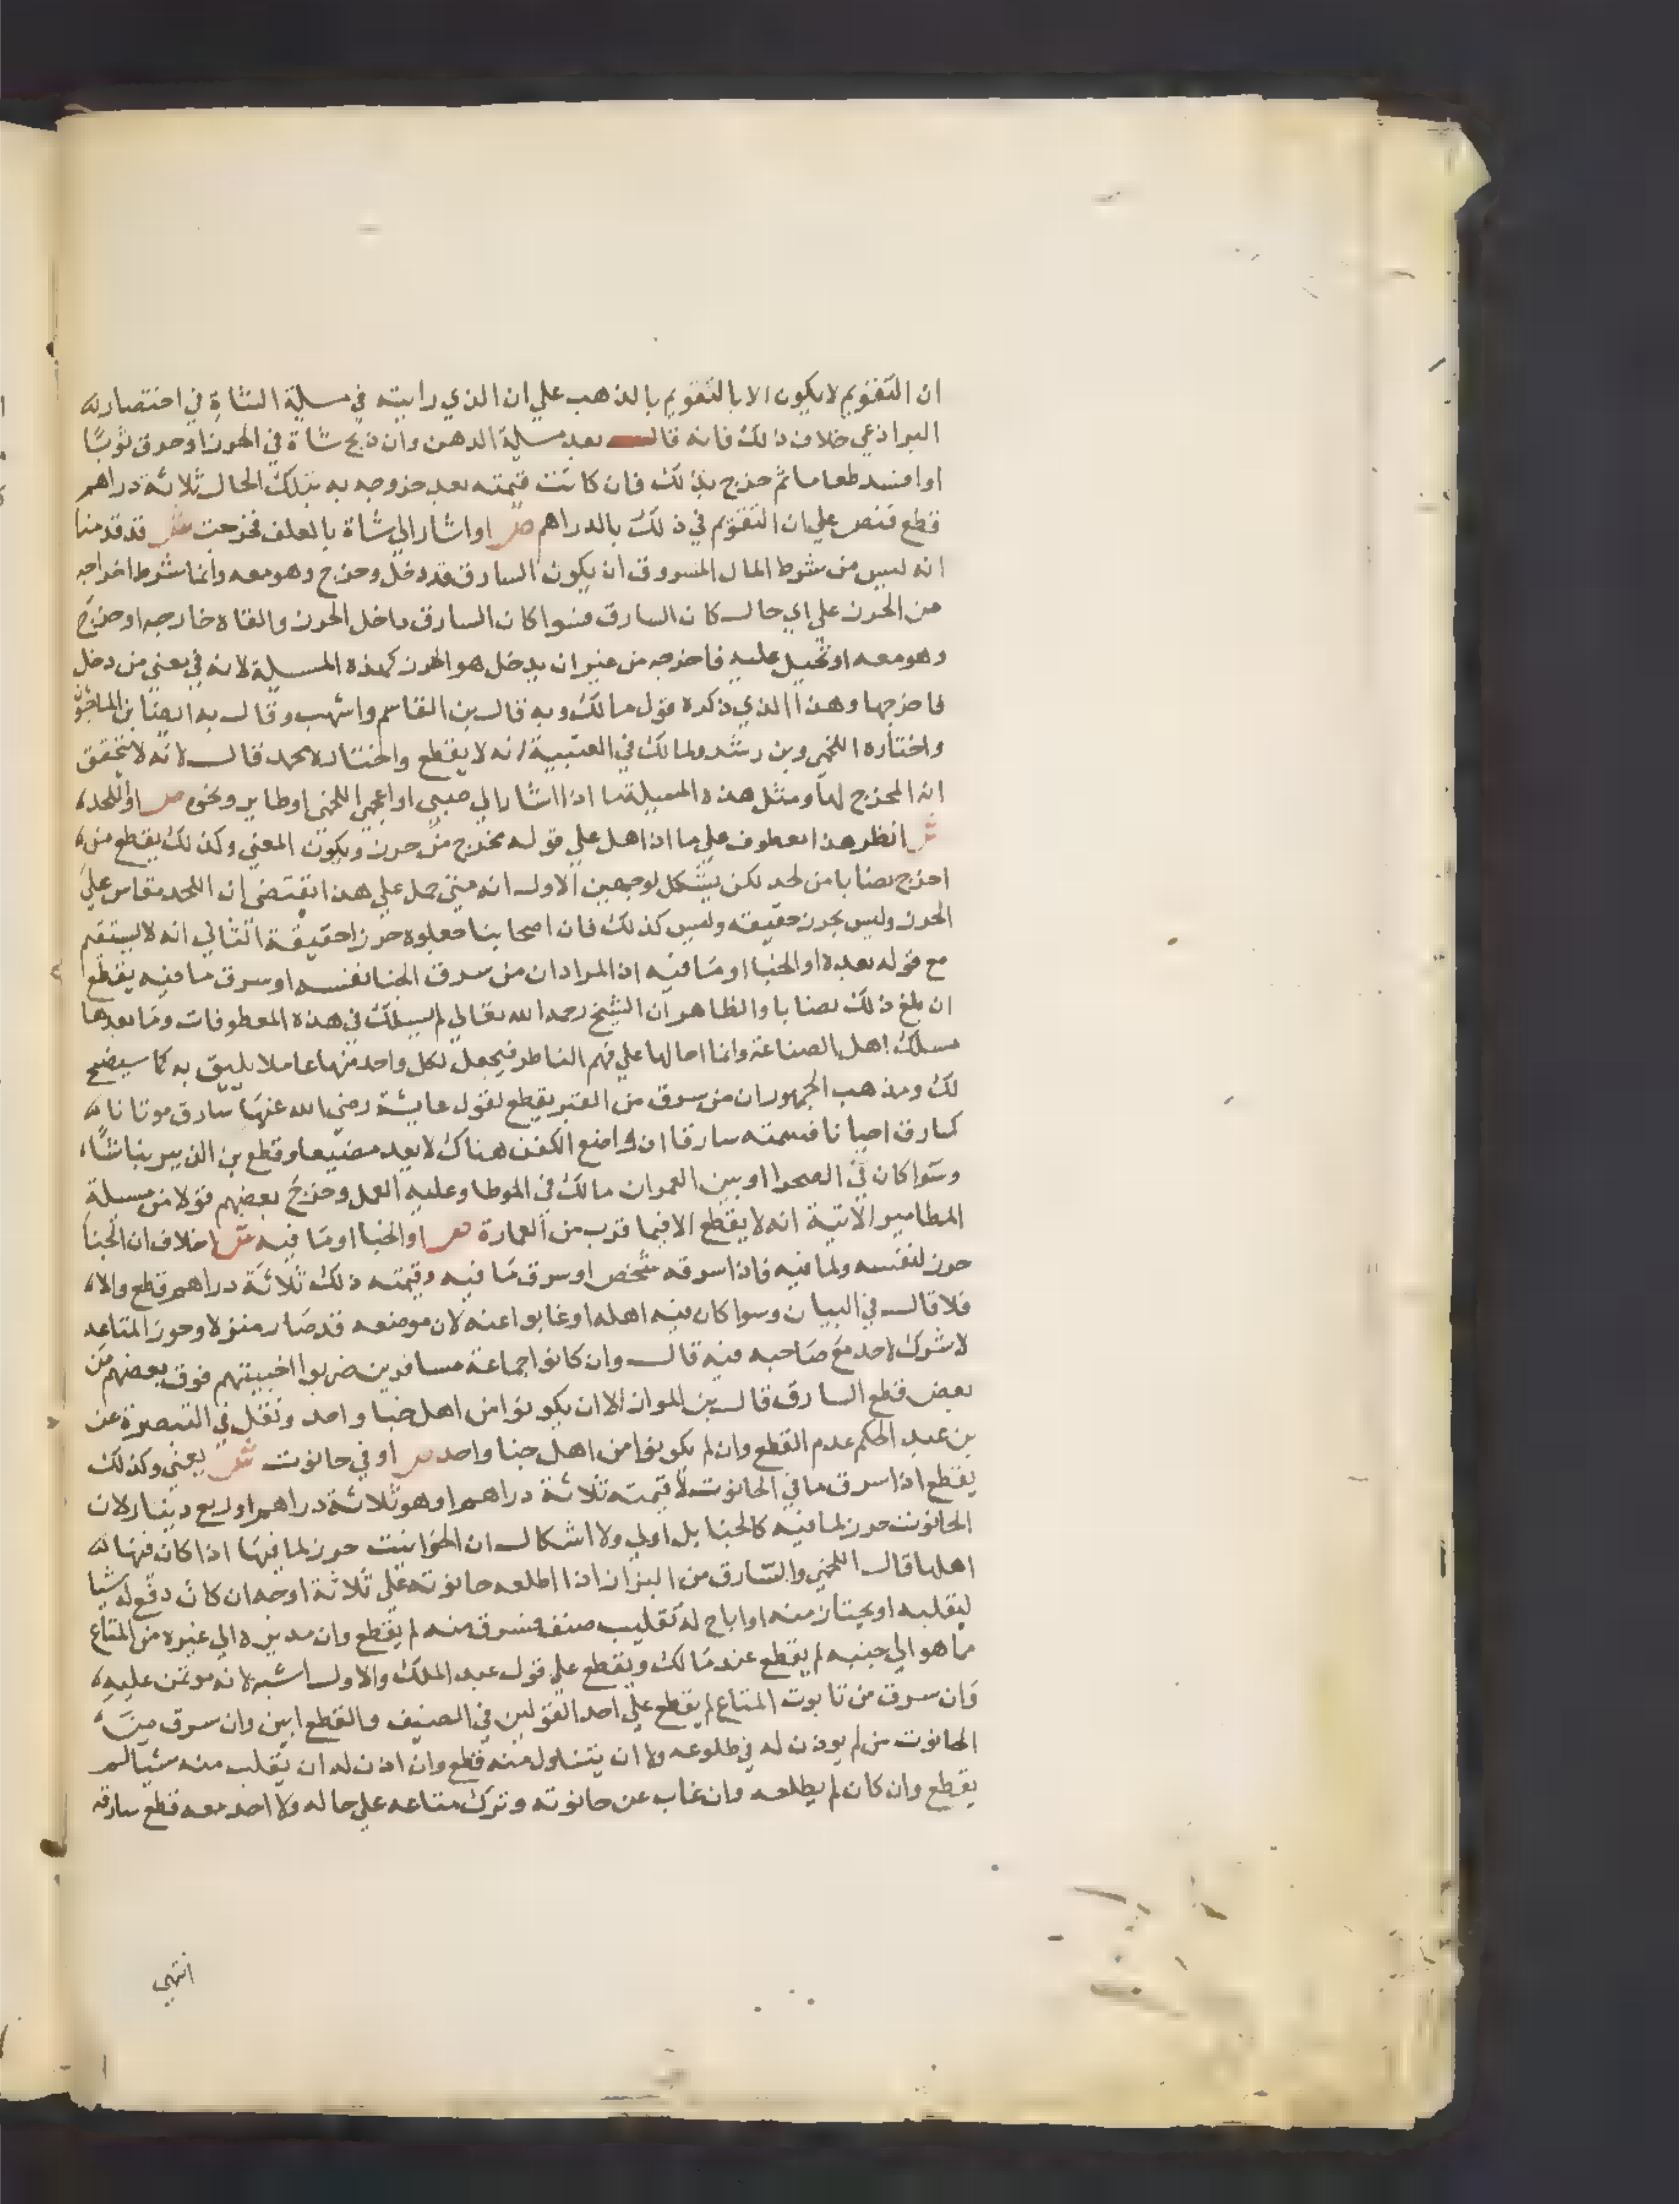 ان التقويم لا يكون الا بالتقويم بالذهب علي ان الذي رايته في مسلية الشاة في اختصار له
البراذعي خلاف ذلك فانه قال بعد مسلية الدهن وان ذبح شاة في الحرز او حرق ثوبا
او افسد طعاما ثم خرج بذلك فان كانت قيمته بعد خروجه به بتلك الحال ثلاثة دراهم
قطع فنص علي ان التقويم في ذلك بالدراهم ص او اشار الي شاة بالعلف فخرجت ش قد قدمنا
انه ليس من شرط المال المسروق ان يكون السارق قد دخل وخرج وهو معه وانما شرط اخراجه
من الحرز علي اي حال كان السارق فسوا كان السارق داخل الحرز والقاه خارجه او خرج
وهو معه او تحيل عليه فاخرجه من غير ان يدخل هو الحرز كهذه المسيلة لانه في معني من دخل
فاخرجها وهذا الذي ذكره قول مالك وبه قال بن القاسم واشهب وقال به ايضا بن الماجشون
واختاره اللخمي وبن رشد ولمالك في العتبية انه لا يقطع واختاره محمد قال لانه لا يتحقق
انه المخرج لها ومثل هذه المسيلة ما اذا اشار الي صبي او اعجمي اللخمي او طاير ونحوه ص او اللحد
ش انظر هذا معطوف علي ماذا هل علي قوله مخرج من حرز ويكون المعني وكذلك يقطع من
اخرج نصابا من لحد لكن يشكل لوجهين الاول انه متي حمل علي هذا اقتضي ان اللحد مقاس علي
الحرز وليس بحرز حقيقة وليس كذلك فان اصحابنا جعلوه حرزا حقيقة الثاني انه لا يستقيم
مع قوله بعده او الخبا او ما فيه اذ المراد ان من سرق الخبا نفسه او سرق ما فيه يقطع
ان بلغ ذلك نصابا والظاهر ان الشيخ رحمه الله تعالي لم يسلك في هذه المعطوفات وما بعدها
مسلك اهل الصناعة وانما احالها علي فهم الناظر فيجعل لكل واحد منها عاملا يليق به كما سيضح
لك ومذهب الجمهور ان من سرق من القبر يقطع لقول عايشة رضي الله عنها سارق موتانا
كسارق احيانا فسمته سارقا اذ واضع الكفن هناك لا يعد مضيعا وقطع بن الزبير نباشا
وسوا كان في الصحرا او بين العمران مالك في الموطا وعليه العمل وخرج بعضهم قولا من مسيلة
المطامير الاتية انه لا يقطع الا فيما قرب من العمارة ص او الخبا او ما فيه ش لا خلاف ان الخبا
حرز لنفسه ولما فيه فاذا سرقه شخص او سرق ما فيه وقيمته ذلك ثلاثة دراهم قطع والا
فلا قال في البيان وسوا كان فيه اهله او غابوا عنه لان موضعه قد صار منزلا وحرز المتاعه
لا شرك لاحد مع صاحبه فيه قال وان كانوا جماعة مسافرين ضربوا اخبيتهم فوق بعضهم من
بعض قطع السارق قال بن المواز الا ان يكونوا من اهل خبا واحد ونقل في التبصرة عن
بن عبد الحكم عدم القطع وان لم يكونوا من اهل خبا واحد ص او في حانوت ش يعني وكذلك
يقطع اذا سرق ما في الحانوت لا قيمته ثلاثة دراهم او هو ثلاثة دراهم او ربع دينار لان
الحانوت حرز لما فيه كالخبا بل اولي ولا اشكال ان الحوانيت حرز لما فيها اذا كان فيها
اهلها قال اللخمي والسارق من البزاز اذا اطلعه حانوته علي ثلاثة اوجه ان كان دفع له شيا
ليقلبه او يختار منه او اباح له تقليب صنف فسرق منه لم يقطع وان مد يده الي غيره من المتاع
مما هو الي جنبه لم يقطع عند مالك ويقطع علي قول عبد الملك والاول اشبه لانه موتمن عليه
وان سرق من تابوت المتاع لم يقطع علي احد القولين في الضيف والقطع ابين وان سرق من
الحانوت من لم يوذن له في طلوعه ولا ان يتناول منه قطع وان اذن له ان يقلب منه شيا لم
يقطع وان كان لم يطلعه وان غاب عن حانوته وترك متاعه علي حاله ولا احد معه قطع سارقه
انتهي